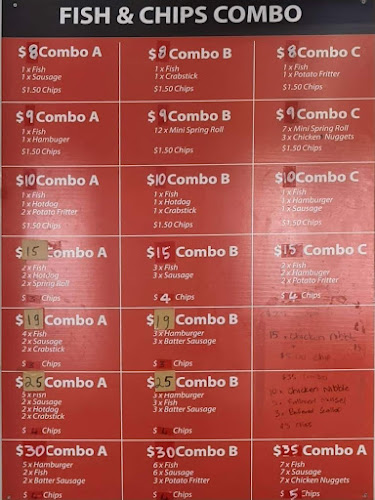 FISH & CHIPS COMBO
$8 Combo A
1 x Fish
1 x Sausage
$1.50 Chips
$8 Combo B
1 x Fish
1 x Crabstick
$1.50 Chips
$8 Combo C
1 x Fish
1 x Potato Fritter
$1.50 Chips
$9 Combo A
1 x Fish
1 x Hamburger
$1.50 Chips
$9 Combo B
12 x Mini Spring Roll
$1.50 Chips
$9 Combo C
7 x Mini Spring Roll
3 x Chicken Nuggets
$1.50 Chips
$10 Combo A
1 x Fish
1 x Hotdog
2 x Potato Fritter
$1.50 Chips
$10 Combo B
1 x Fish
1 x Hotdog
1 x Crabstick
$1.50 Chips
$10 Combo C
1 x Fish
1 x Hamburger
1 x Sausage
$1.50 Chips
$15 Combo A
2 x Fish
2 x Hotdog
2 x Spring Roll
$ Chips
$15 Combo B
3 x Fish
3 x Sausage
$4 Chips
$15 Combo C
2 x Fish
2 x Hamburger
2 x Potato Fritter
$4 Chips
$19 Combo A
4 x Fish
2 x Sausage
2 x Crabstick
$ Chips
$19 Combo B
3 x Hamburger
3 x Batter Sausage
$ Chips
$25 Combo A
5 x Fish
2 x Sausage
2 x Hotdog
2 x Crabstick
$ Chips
$25 Combo B
3 x Hamburger
3 x Fish
3 x Batter Sausage
$ Chips
$35 Combo
Chicken Nibble
$30 Combo A
5 x Hamburger
2 x Fish
2 x Batter Sausage
$ Chips
$30 Combo B
6 x Fish
6 x Sausage
3 x Potato Fritter
$ Chips
$35 Combo A
7 x Fish
7 x Sausage
7 x Chicken Nuggets
$5 Chips